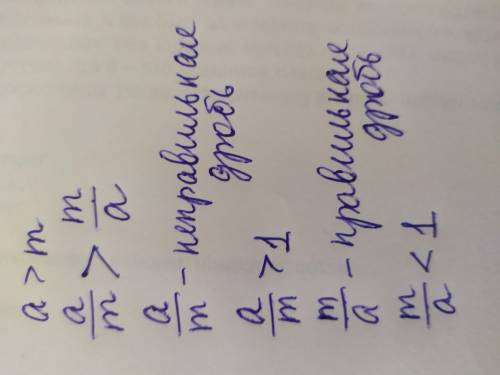 a > m
a/m > m/a
a/m - неправильная
дробь
a/m > 1
m/a - правильная
дробь
m/a < 1